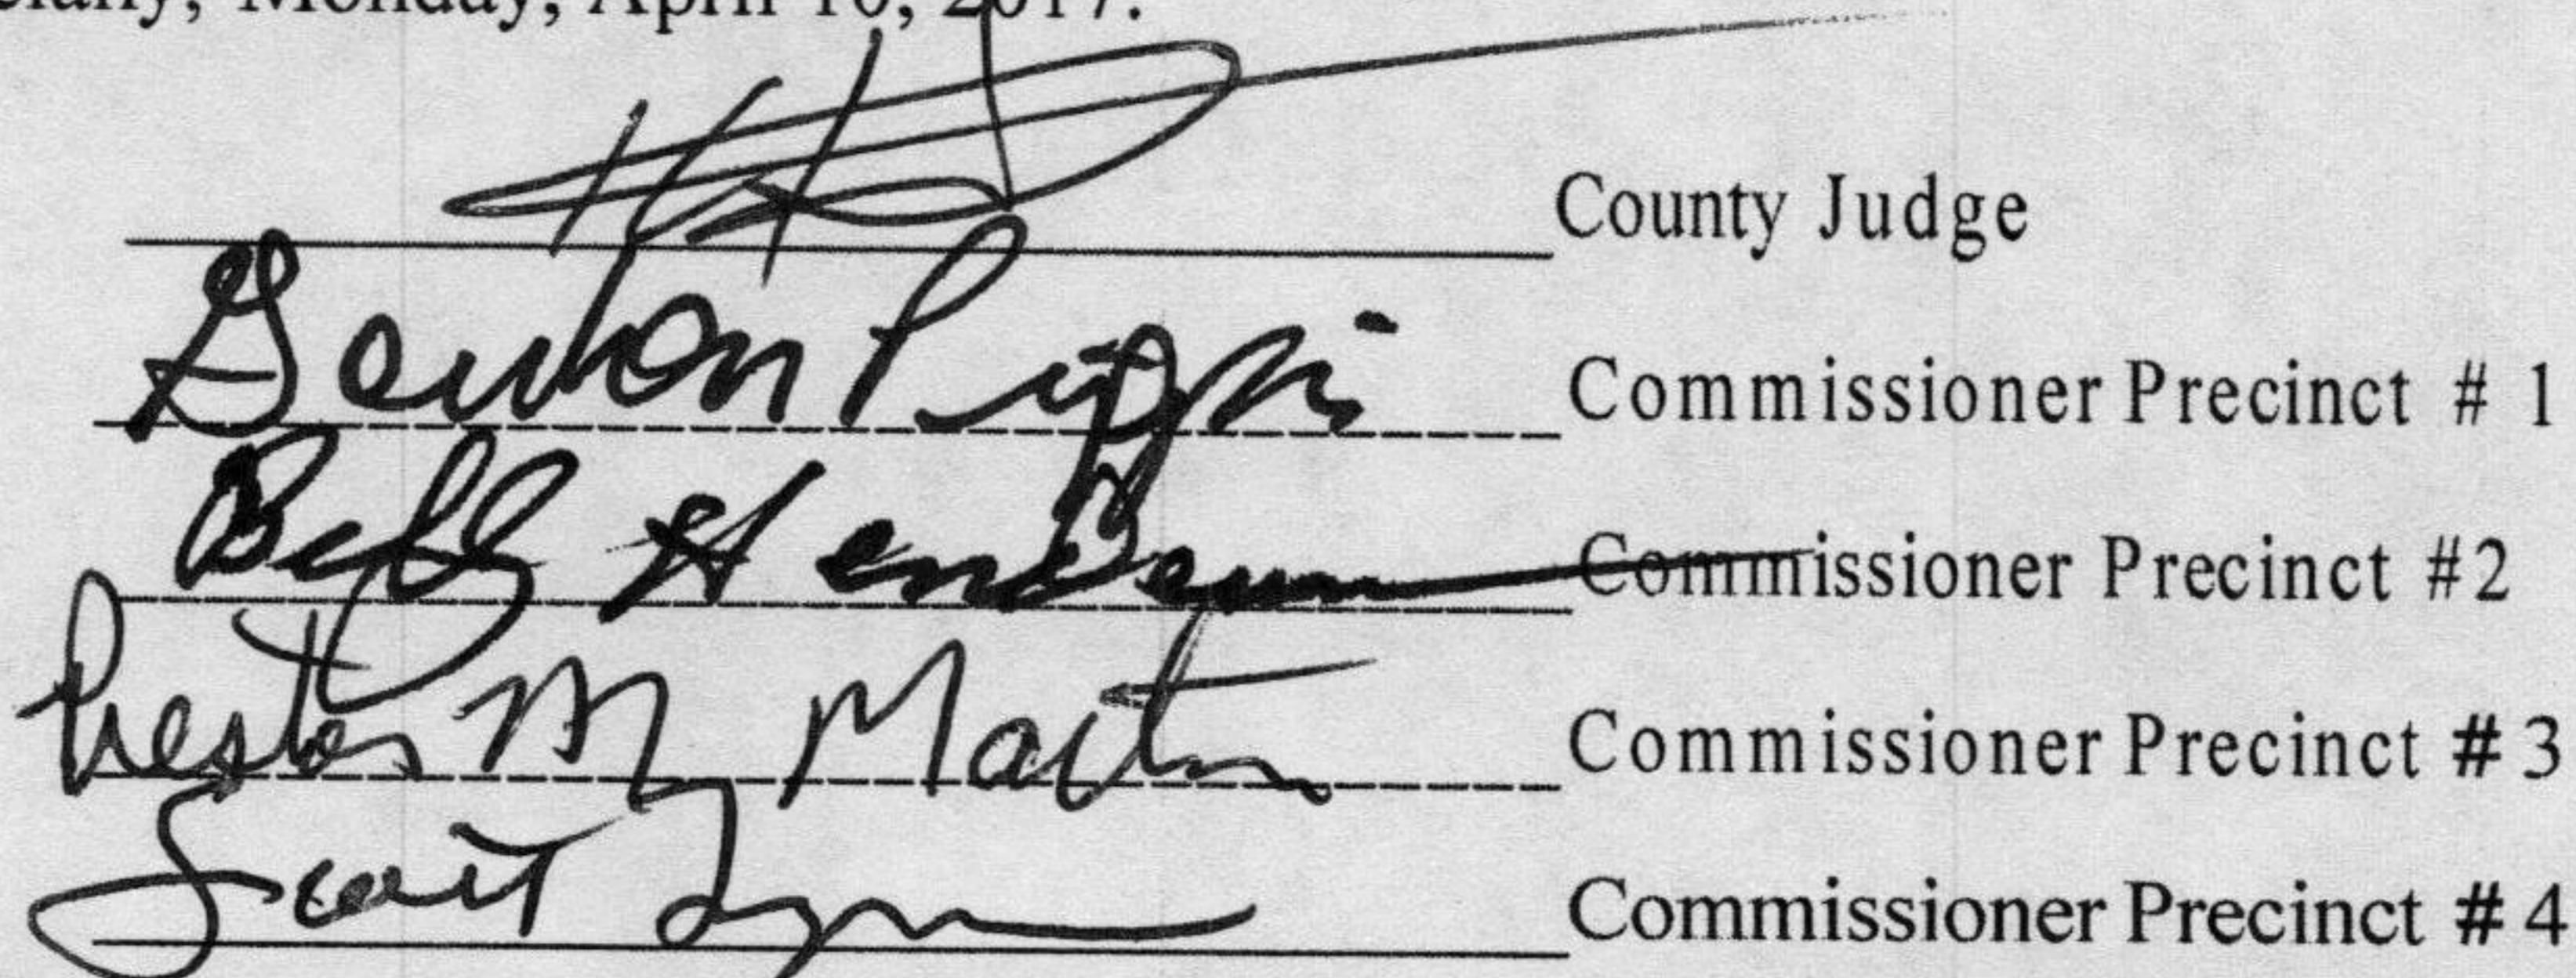 Monday, April 10, 2017.
County Judge
Commissioner Precinct # 1
Billy Henderson Commissioner Precinct #2
Preston M Martin Commissioner Precinct # 3
Scott Lynn Commissioner Precinct # 4